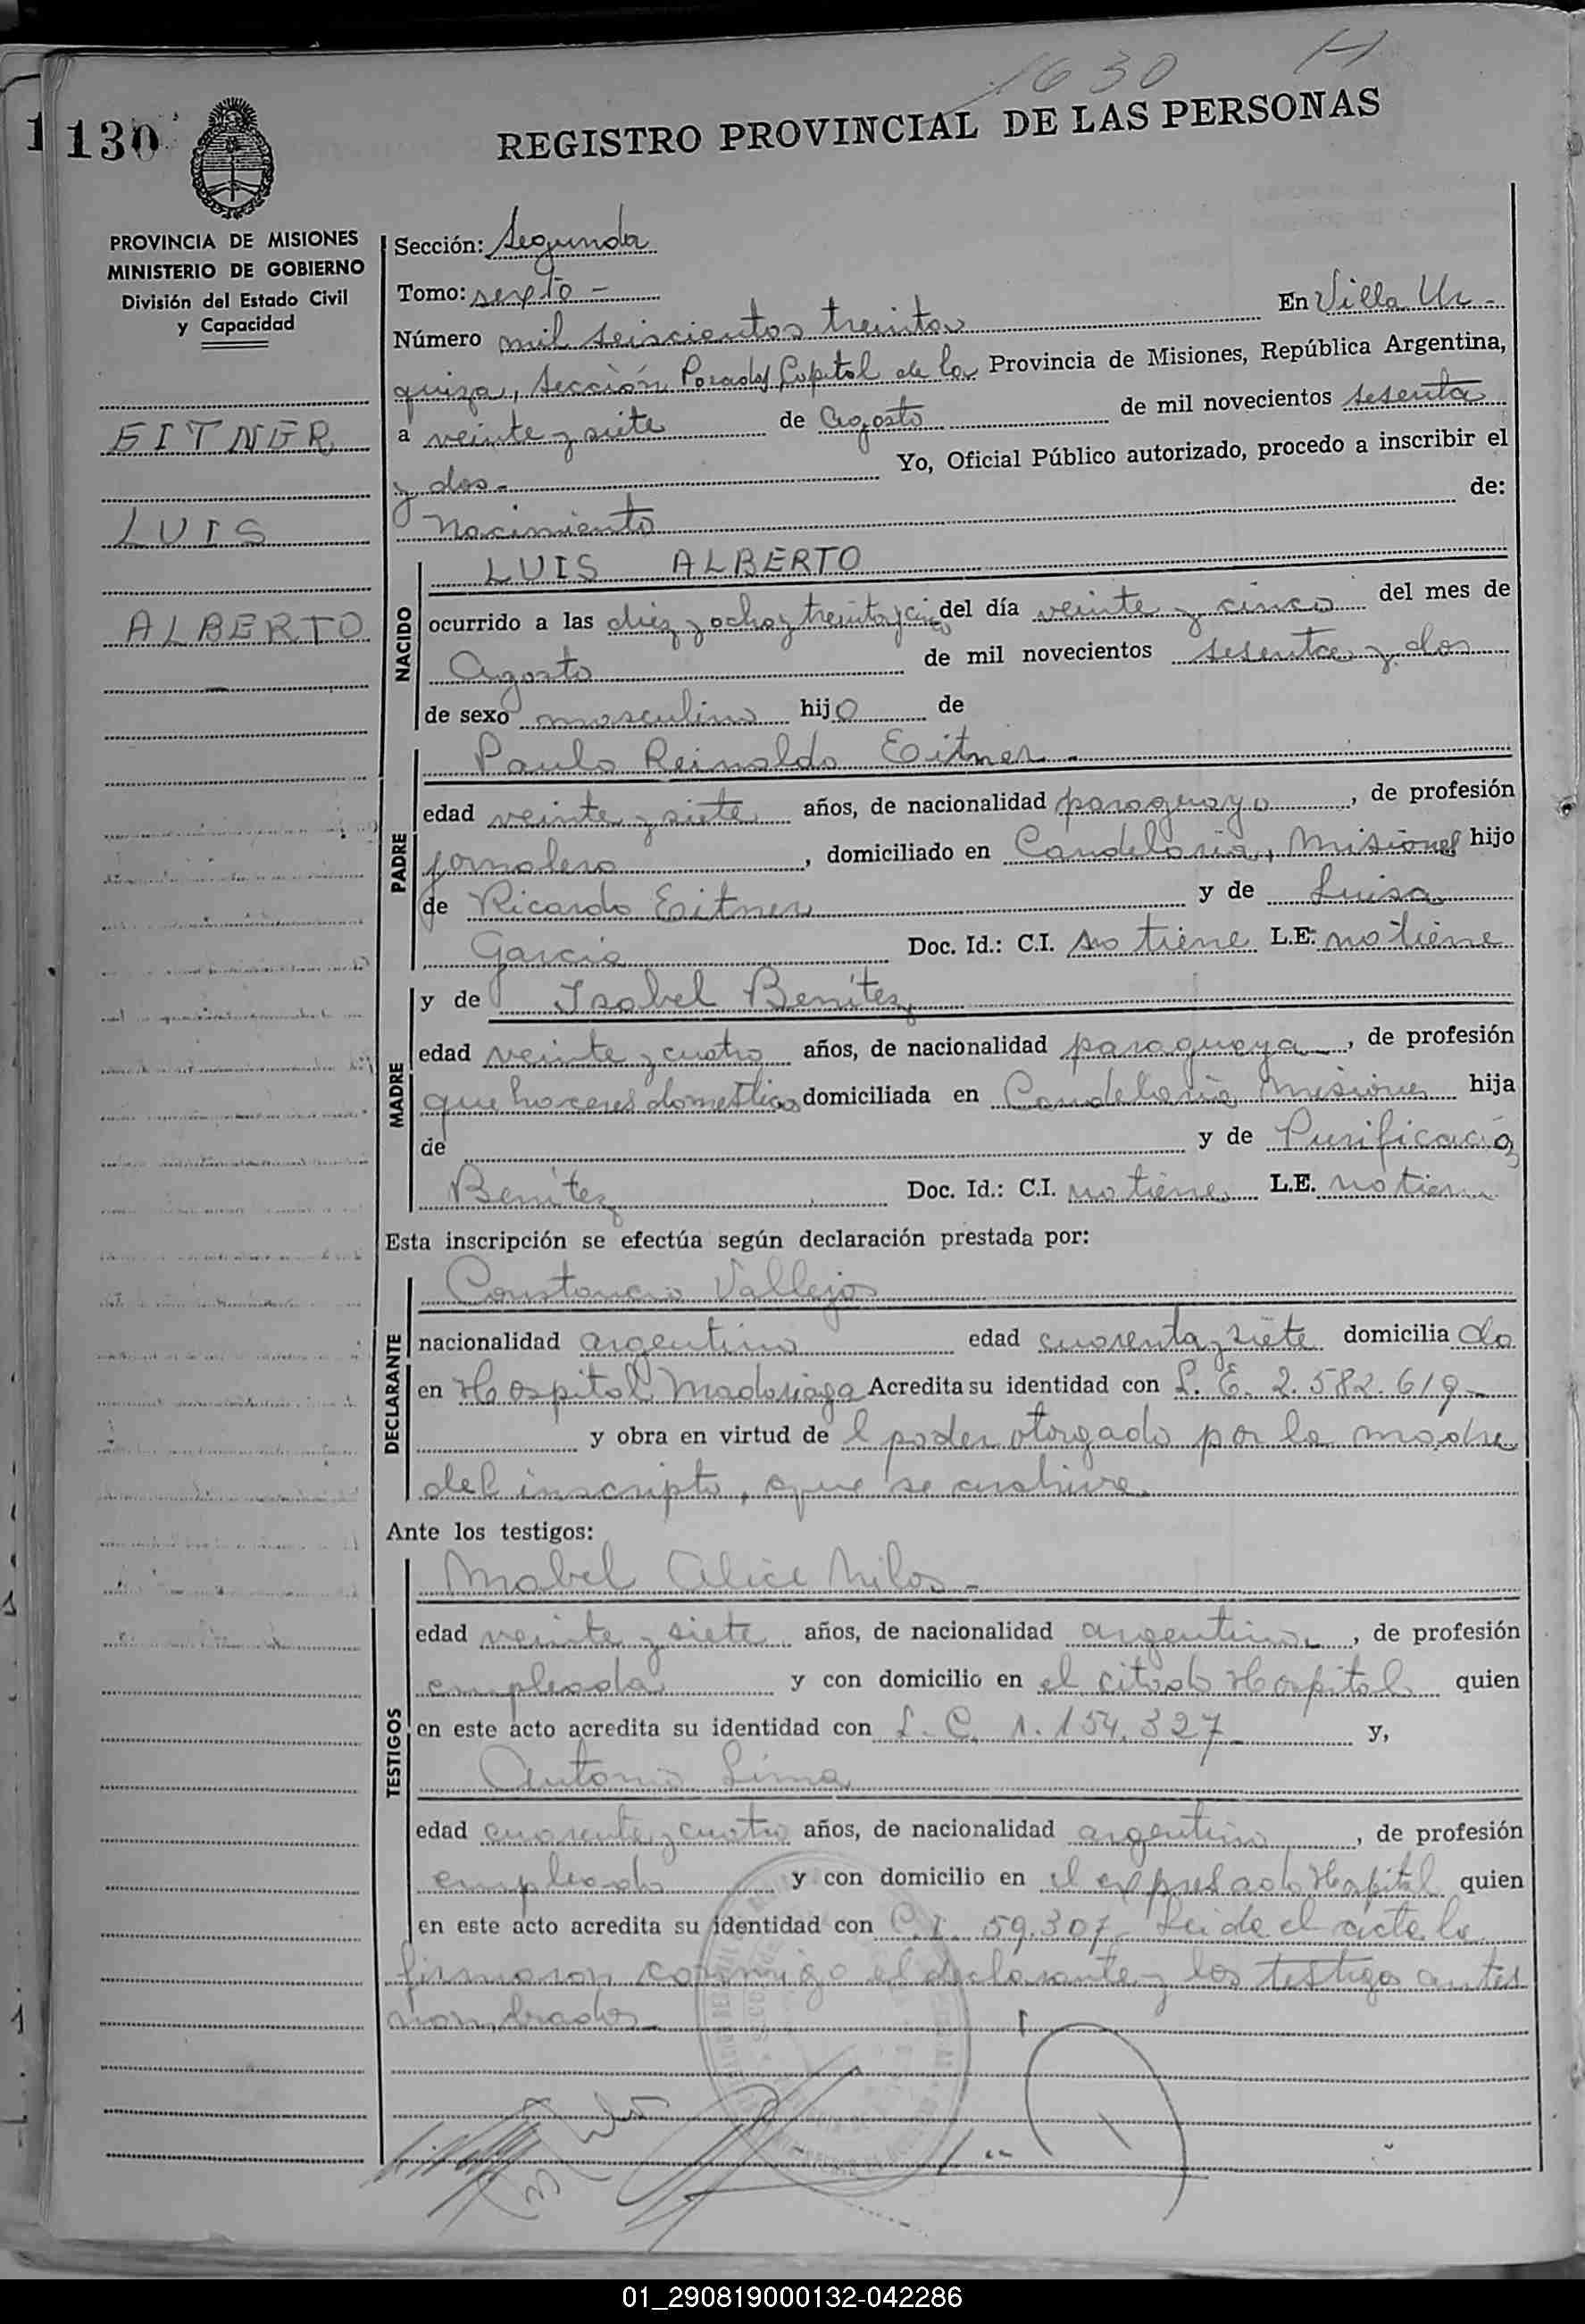 1630 H
130
REGISTRO PROVINCIAL DE LAS PERSONAS
PROVINCIA DE MISIONES
MINISTERIO DE GOBIERNO
División del Estado Civil
y Capacidad
EITNER
LUIS
ALBERTO
Sección: Segunda
Tomo: sexto -
Número mil seiscientos treinta En Villa Ur-
quiza, Sección Posadas Capital de la Provincia de Misiones, República Argentina,
a veinte y siete de Agosto de mil novecientos sesenta
y dos.- Yo, Oficial Público autorizado, procedo a inscribir el
nacimiento de:
NACIDO
LUIS ALBERTO
ocurrido a las diez y ocho y treinta y cinco del día veinte y cinco del mes de
Agosto de mil novecientos sesenta y dos
de sexo masculino hijo de
PADRE
Paulo Reinaldo Eitner.-
edad veinte y siete años, de nacionalidad paraguayo, de profesión
jornalero, domiciliado en Candelaria, Misiones hijo
de Ricardo Eitner y de Luisa
Garcia Doc. Id.: C.I. no tiene L.E: no tiene
MADRE
y de Isabel Benítez
edad veinte y cuatro años, de nacionalidad paraguaya, de profesión
que haceres domesticos domiciliada en Candelaria Misiones hija
de y de Purificació
Benítez Doc. Id.: C.I. no tiene L.E. no tiene
Esta inscripción se efectúa según declaración prestada por:
DECLARANTE
Constancio Vallejos
nacionalidad argentino edad cuarenta y siete domiciliado
en Hospital Madariaga Acredita su identidad con L. E. 2.582.619-
y obra en virtud de l poder otorgado por la madre
del inscripto, que se archiva
Ante los testigos:
TESTIGOS
Mabel Alice -
edad veinte y siete años, de nacionalidad argentina, de profesión
empleada y con domicilio en el citado Hospital quien
en este acto acredita su identidad con L. C. 1.154.327 y,
Antonio Lima
edad cuarenta y cuatro años, de nacionalidad argentino, de profesión
empleado y con domicilio en el expresado Hospital quien
en este acto acredita su identidad con C.I. 59.307- Leida el acta la
firmaron conmigo el declarante y los testigos antes
nombrados-
01_290819000132-042286